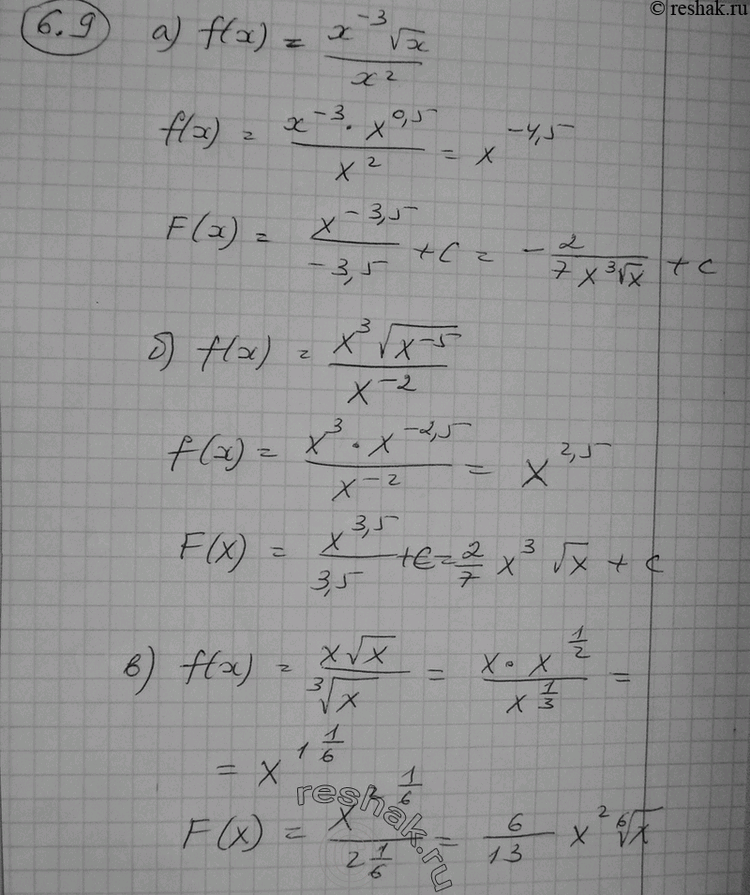 © reshak.ru
6.9 а) f(x) = x^-3 √x / x^2
f(x) = x^-3 · x^0,5 / x^2 = x^-4,5
F(x) = x^-3,5 / -3,5 + C = - 2 / 7 x^3 √x + C
б) f(x) = x^3 √x^-5 / x^-2
f(x) = x^3 · x^-2,5 / x^-2 = x^2,5
F(x) = x^3,5 / 3,5 + C = 2/7 x^3 √x + C
в) f(x) = x √x / ∛x = x · x^1/2 / x^1/3 =
= x^1 1/6
F(x) = x^2 1/6 / 2 1/6 = 6/13 x^2 ⁶√x
reshak.ru